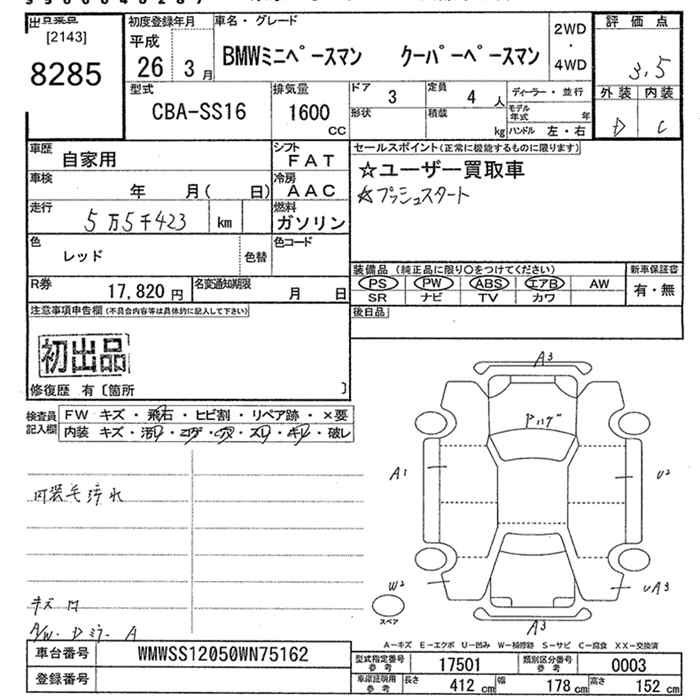 出品票点
[2143]
8285
初度登録年月
平成
26 3月
車名・グレード
BMWミニペースマン クーパーペースマン
2WD
・
4WD
評価点
3.5
外装 内装
D C
型式
CBA-SS16
排気量
1600
CC
ドア
3
定員
4 人
ディーラー・並行
形状
積載
kg
モデル年式 年
ハンドル 左・右
車歴
自家用
シフト
FAT
車検
年 月( 日)
冷房
AAC
走行
5万5千423 km
燃料
ガソリン
色
レッド
色替
色コード
セールスポイント(正常に機能するものに限ります)
☆ユーザー買取車
☆プッシュスタート
R券
17,820 円
名変通知期限
月 日
装備品 (純正品に限り○をつけてください)
PS PW ABS エアB AW
SR ナビ TV カワ
新車保証書
有・無
注意事項申告欄(不具合内容等は具体的に記入して下さい)
後日品
初出品
修復歴 有〔箇所 〕
検査員記入欄
FW キズ・飛石・ヒビ割・リペア跡・×要
内装 キズ・汚れ・コゲ・穴・スレ・キレ・破レ
内装毛汚れ
キズ
A/W・Dミラー A
A3
A1
U2
W2
UA3
A3
スペア
A－キズ E－エクボ U－凹み W－補修跡 S－サビ C－腐食 XX－交換済
車台番号
WMWSS12050WN75162
登録番号
型式指定番号参考
17501
類別区分番号参考
0003
車庫証明用参考
長さ 412 cm
幅 178 cm
高さ 152 cm